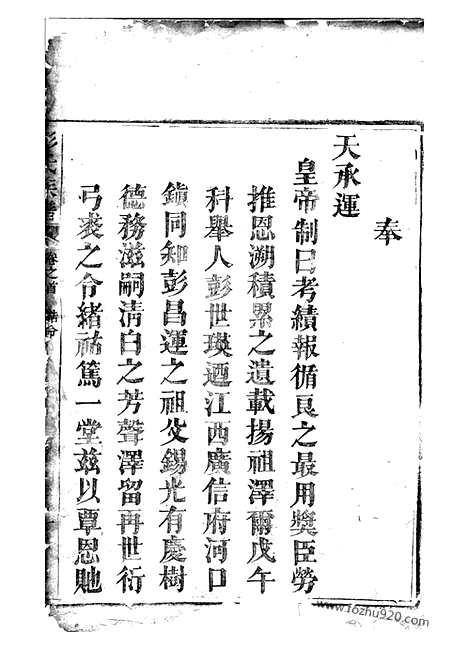 奉
天承運
皇帝制曰考績報循良之最用獎臣勞
推恩溯積累之遺載揚祖澤爾戊午
科舉人彭世瑛迺江西廣信府河口
鎮同知彭昌運之祖父錫光有慶樹
德務滋嗣清白之芳聲澤留再世衍
弓裘之令緒祐篤一堂茲以覃恩貤
彭氏族譜
卷之首
www.fozhu920.com